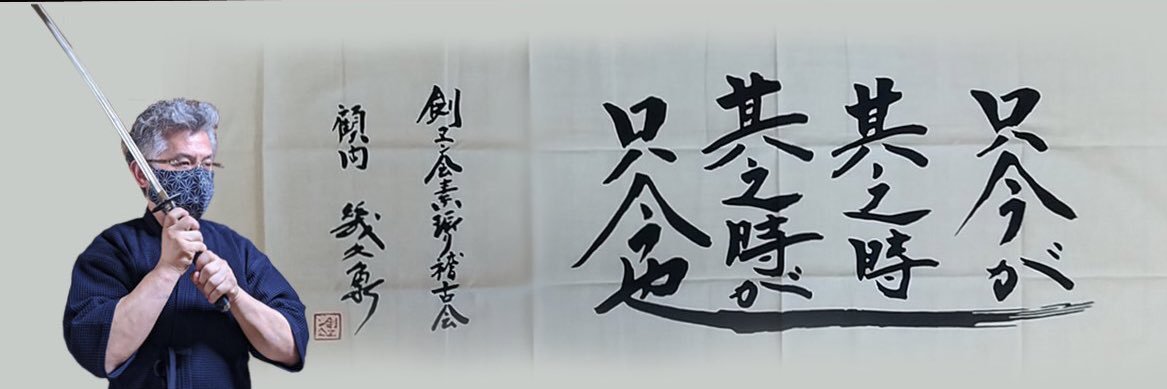 只今が
其之時
其之時が
只今也
剣子会素振り稽古会
顧問